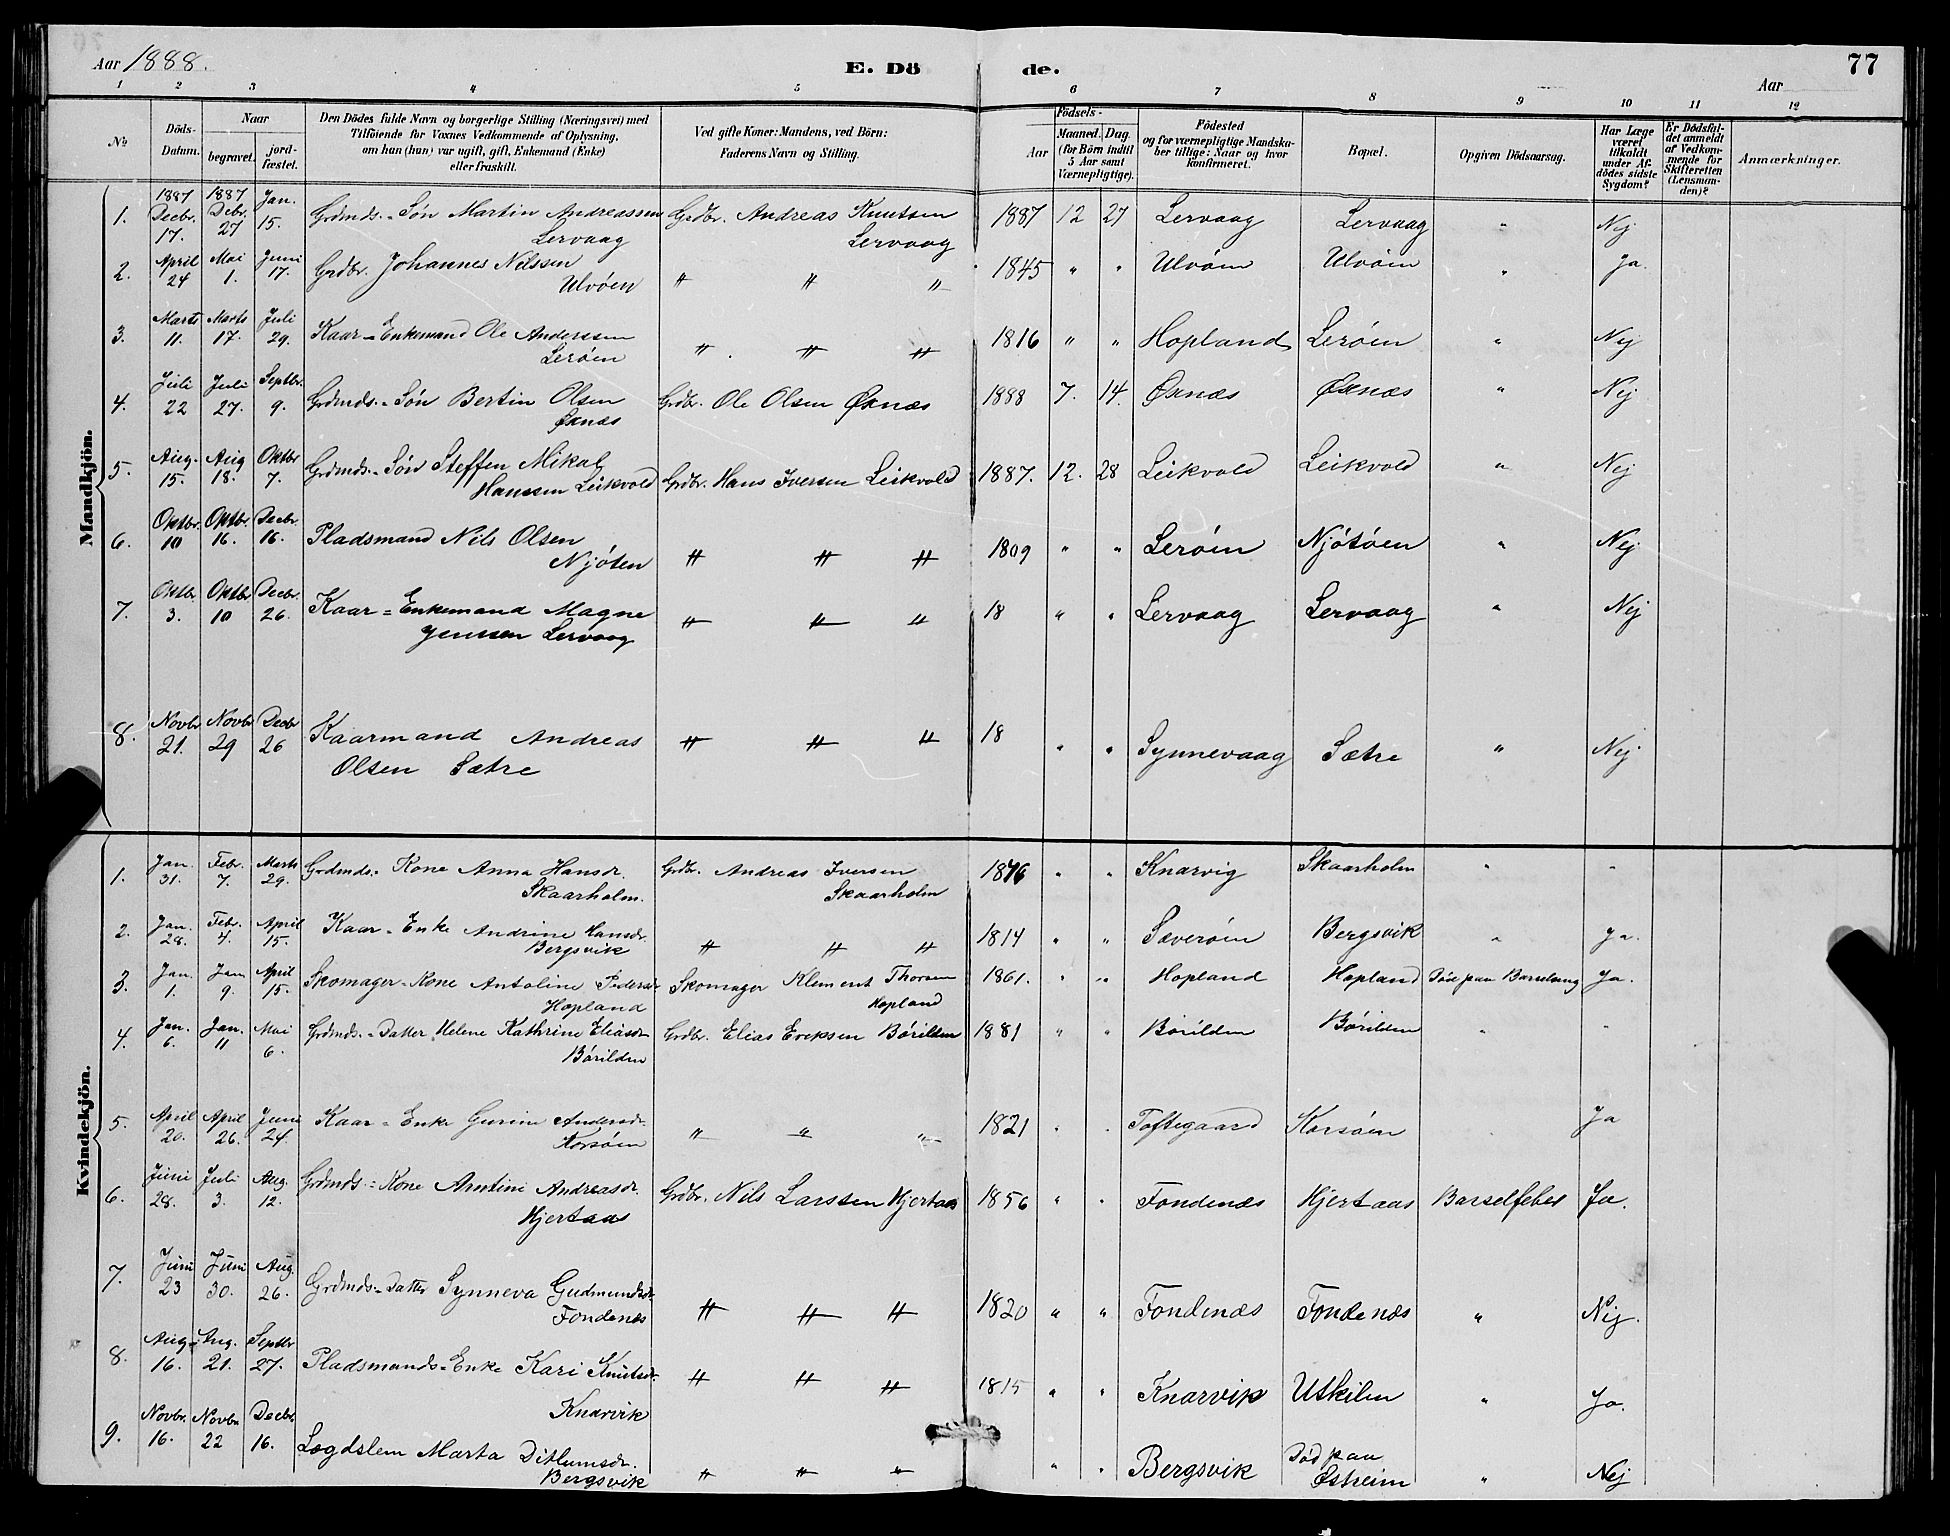 Aar 1888. E. Dö de. Aar 77
1 2 3 4 5 6 7 8 9 10 11 12
№ Döds-Datum. Naar begravet. jordfæstet. Den Dödes fulde Navn og borgerlige Stilling (Næringsvei) med Tilföiende for Voxnes Vedkommende af Oplysning, om han (hun) var ugift, gift, Enkemand (Enke) eller fraskilt. Ved gifte Koner: Mandens, ved Börn: Faderens Navn og Stilling. Födsels- Aar Maaned. Dag. (for Börn indtil 5 Aar samt Værnepligtige). Födested og for værnepligtige Mandskaber tillige: Naar og hvor konfirmeret. Bopæl. Opgiven Dödsaarsag. Har Læge været tilkaldt under Afdödes sidste Sygdom? Er Dödsfaldet anmeldt af Vedkommende for Skifteretten (Lensmanden)? Anmærkninger.
Mandkjön.
1. 1887 Decbr. 17. 1887 Debr. 27 Jan. 15. Grdmds.-Søn Martin Andreassen Lervaag Grdbr. Andreas Knutsen Lervaag 1887 12 27 Lervaag Lervaag " Nej
2. April 24 Mai 1. Juni 17. Grdbr. Johannes Nilssen Ulvöen " " " 1845 " " Ulvöen Ulvöen " Ja.
3. Marts 11. Marts 17. Juli 29. Kaar-Enkemand Ole Anderssen Leröen " " " 1816 " " Hopland Leröen " Nej
4. Juli 22 Juli 27. Septbr. 9. Grdmds.-Søn Bertin Olsen Øxnæs Grdbr. Ole Olsen Øxnæs 1888 7. 14. Øxnæs Øxnæs " Nej
5. Aug. 15. Aug 18. Oktbr 7. Grdmds.-Søn Steffen Mikal Hanssen Leikvold Grdbr. Hans Iversen Leikvold 1887. 12. 28 Leikvold Leikvold " Nej
6. Oktbr. 10 Oktbr. 16. Decbr. 16. Pladsmand Nils Olsen Njöten " " " 1809 " " Leröen Njötöen " Nej
7. Oktbr. 3. Oktbr. 10 Decbr. 26. Kaar-Enkemand Magne Jenssen Lervaag " " " 18 " " Lervaag Lervaag " Nej
8. Novbr 21. Novbr 29 Decbr 26 Kaarmand Andreas Olsen Sætre " " " 18 " " Synnevaag Sætre " Nej
Kvindekjön.
1. Jan. 31. Febr. 7. Marts 29. Grdmds.-Kone Anna Hansdr. Skaarholm. Grdbr. Andreas Iversen Skaarholm 1846 " " Knarvig Skaarholm " "
2. Jan. 28. Febr. 4. April 15. Kaar-Enke Andrine Hansdr. Bergsvik " " " 1814 " " Sæveröen Bergsvik " Ja.
3. Jan. 1. Jan 9. April 15. Skomager-Kone Antoline Pedersdr Hopland Skomager Klement Thorsen Hopland 1861. " " Hopland Hopland Död paa Barselseng Ja.
4. Jan. 6. Jan. 11 Mai 6. Grdmds.-Datter Helene Kathrine Eliasdr Börilden Grdbr. Elias Eriksen Börilden 1881 " " Börilden Börilden " "
5. April 20. April 26. Juni 24. Kaar-Enke Gurine Andersdr. Korsöen " " " 1821 " " Toftegaard Korsöen Ja
6. Juni 28. Juli 3. Aug. 12. Grdmds.-Kone Amtine Andreasdr. Hjertaas Grdbr. Nils Larssen Hjertaas 1856 " " Fondenæs Hjertaas Barselfeber Ja.
7. Juni 23 Juni 30. Aug. 26. Grdmds.-Datter Synneva Gudmundsdr. Fondenæs " " " 1820 " " Fondenæs Fondenæs " Nej.
8. Aug. 16. Aug. 21. Septbr 27. Pladsmands-Enke Kari Knutsdr. Knarvik " " " 1815 " " Knarvik Utkilen " Ja.
9. Novbr. 16. Novbr 22 Decbr. 16. Lægdslem Marta Ditlumsdr. Bergsvik " " " " " Bergsvik Död paa Østreim " Nej